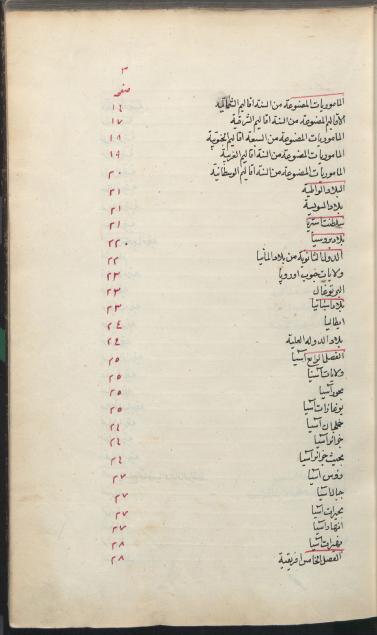 ٣
صفحه
المأموريات المصنوعة من الستة اقاليم الشمالية ١٤
الاقاليم المصنوعة من الستة اقاليم الشرقية ١٧
المأموريات المصنوعة من السبعة اقاليم الجنوبية ١٨
المأموريات المصنوعة من الستة اقاليم الغربية ١٩
المأموريات المصنوعة من الستة اقاليم الوسطانية ٢٠
البلاد الواطية ٢١
بلاد السويسة ٢١
سلطنت استريا ٢١
بلاد بروسيا ٢٢
الدول الثانوية من بلاد المانيا ٢٢
ولايات جنوب اوروپا ٢٣
البرتوغال ٢٣
بلاد اسبانيا ٢٣
ايطاليا ٢٤
بلاد الدولة العلية ٢٤
الفصل الرابع آسيا ٢٥
ولايات آسيا ٢٥
بحور آسيا ٢٥
بوغازات آسيا ٢٥
خلجان آسيا ٢٦
جزائر آسيا ٢٦
بحيث جزائر آسيا ٢٦
رؤس آسيا ٢٧
جبال آسيا ٢٧
بحيرات آسيا ٢٧
انهار آسيا ٢٧
آسيا ٢٨
الفصل الخامس افريقية ٢٨